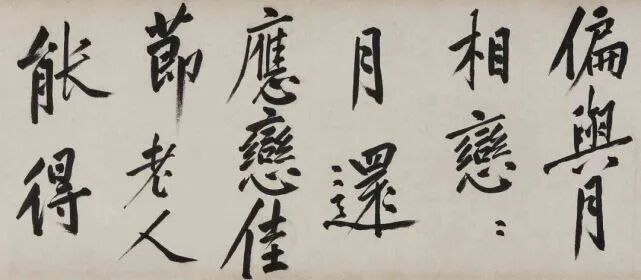 偏與月
相戀〻
月還
應戀佳
節老人
能得